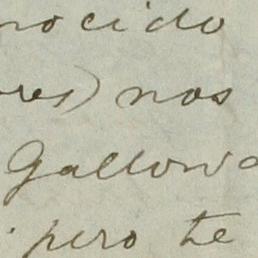 nocido
ores) nos
Gallowa
. pero te